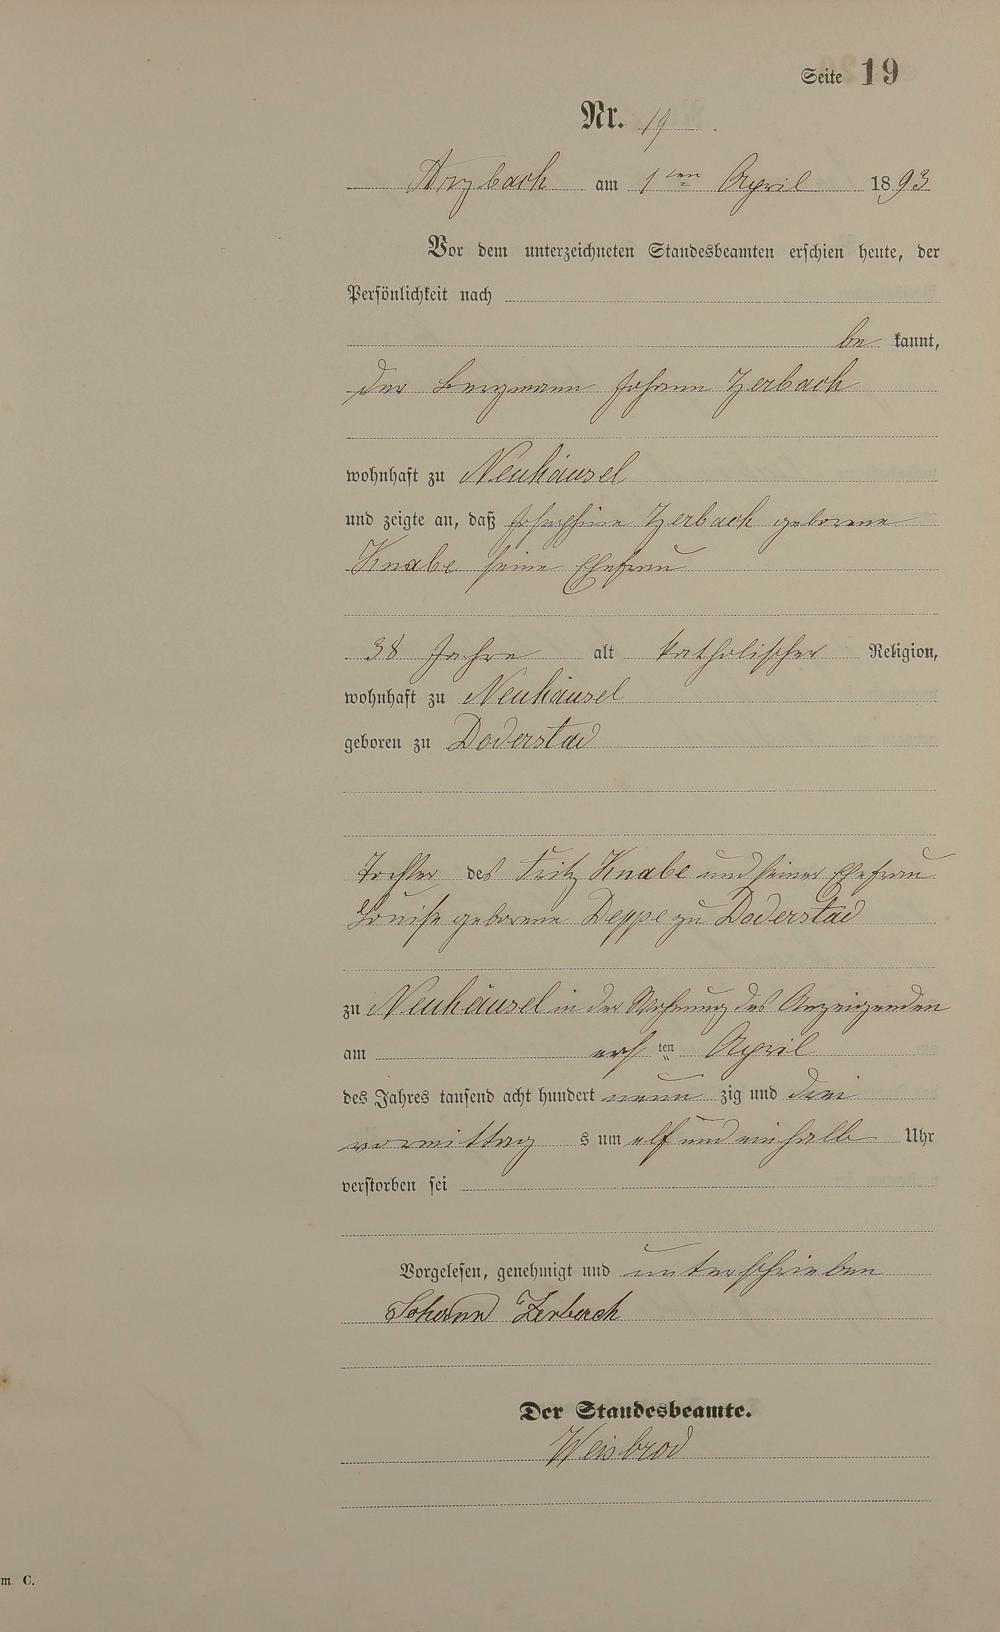 Seite 19
Nr. 19
Arzbach am 1ten April 1893
Vor dem unterzeichneten Standesbeamten erschien heute, der
Persönlichkeit nach
be kannt,
der Bergmann Johann Zerbach
wohnhaft zu Neuhäusel
und zeigte an, daß Josephine Zerbach geborene
Knabe seine Ehefrau
38 Jahre alt katholischer Religion,
wohnhaft zu Neuhäusel
geboren zu Doderstad
Tochter des Fritz Knabe und seiner Ehefrau
Louise geborene Deppe zu Doderstad
zu Neuhäusel in der Wohnung des Anzeigenden
am ersten April
des Jahres tausend acht hundert neunzig und drei
vormittags um elf und einhalb Uhr
verstorben sei
Vorgelesen, genehmigt und unterschrieben
Johann Zerbach
Der Standesbeamte.
Weisbrod
m C.